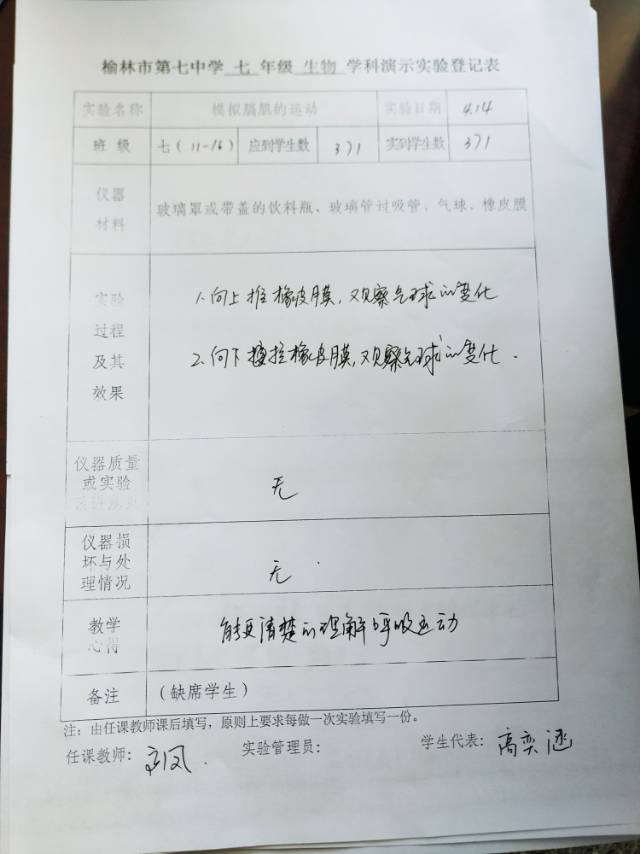 榆林市第七中学 七 年级 生物 学科演示实验登记表
实验名称 模拟膈肌的运动 实验日期 4.14
班 级 七(11-16) 应到学生数 371 实到学生数 371
仪器
材料
玻璃罩或带盖的饮料瓶、玻璃管过吸管、气球、橡皮膜
实验
过程
及其
效果
1.向上推橡皮膜,观察气球的变化
2.向下拉橡皮膜,观察气球的变化.
仪器质量
或实验
无
仪器损
坏与处
理情况
无
教学
心得
能更清楚的理解呼吸运动
备注 (缺席学生)
注:由任课教师课后填写,原则上要求每做一次实验填写一份。
任课教师: 实验管理员: 学生代表:高奕涵